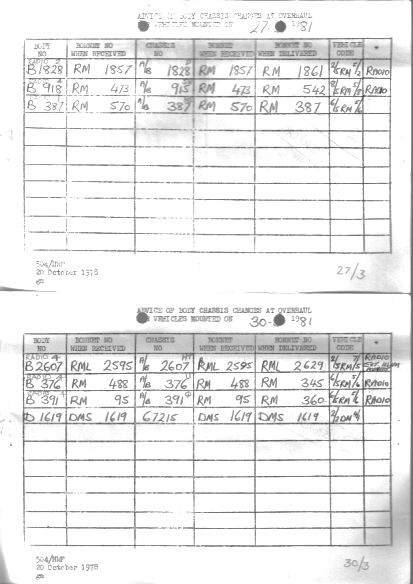 ADVICE OF BODY CHASSIS CHANGES AT OVERHAUL
VEHICLES MOUNTED ON 27- 1981
BODY NO BONNET NO WHEN RECEIVED CHASSIS NO BONNET WHEN RECEIVED BONNET NO WHEN DELIVERED VEHICLE CODE
RADIO 2
B1828 RM 1857 A/B 1828 RM 1857 RM 1861 2/5RM 5/2 RADIO
B 918 RM 473 A/B 915 RM 473 RM 542 RADIO
B 387 RM 570 387 RM 570 RM 387 5RM 5/6
504/HMP
20 October 1978
27/3
ADVICE OF BODY CHASSIS CHANGES AT OVERHAUL
VEHICLES MOUNTED ON 30- 1981
BODY NO BONNET NO WHEN RECEIVED CHASSIS NO BONNET WHEN RECEIVED BONNET NO WHEN DELIVERED VEHICLE CODE
RADIO 4
B2607 RML 2595 A/B 2607 RML 2595 RML 2629 2/5RM 7/5 RADIO
B 376 RM 488 A/B 376 RM 488 RM 345 RADIO
B 391 RM 95 A/B 391 RM 95 RM 360 RADIO
D 1619 DMS 1619 67215 DMS 1619 DMS 1619
504/HMP
20 October 1978
30/3